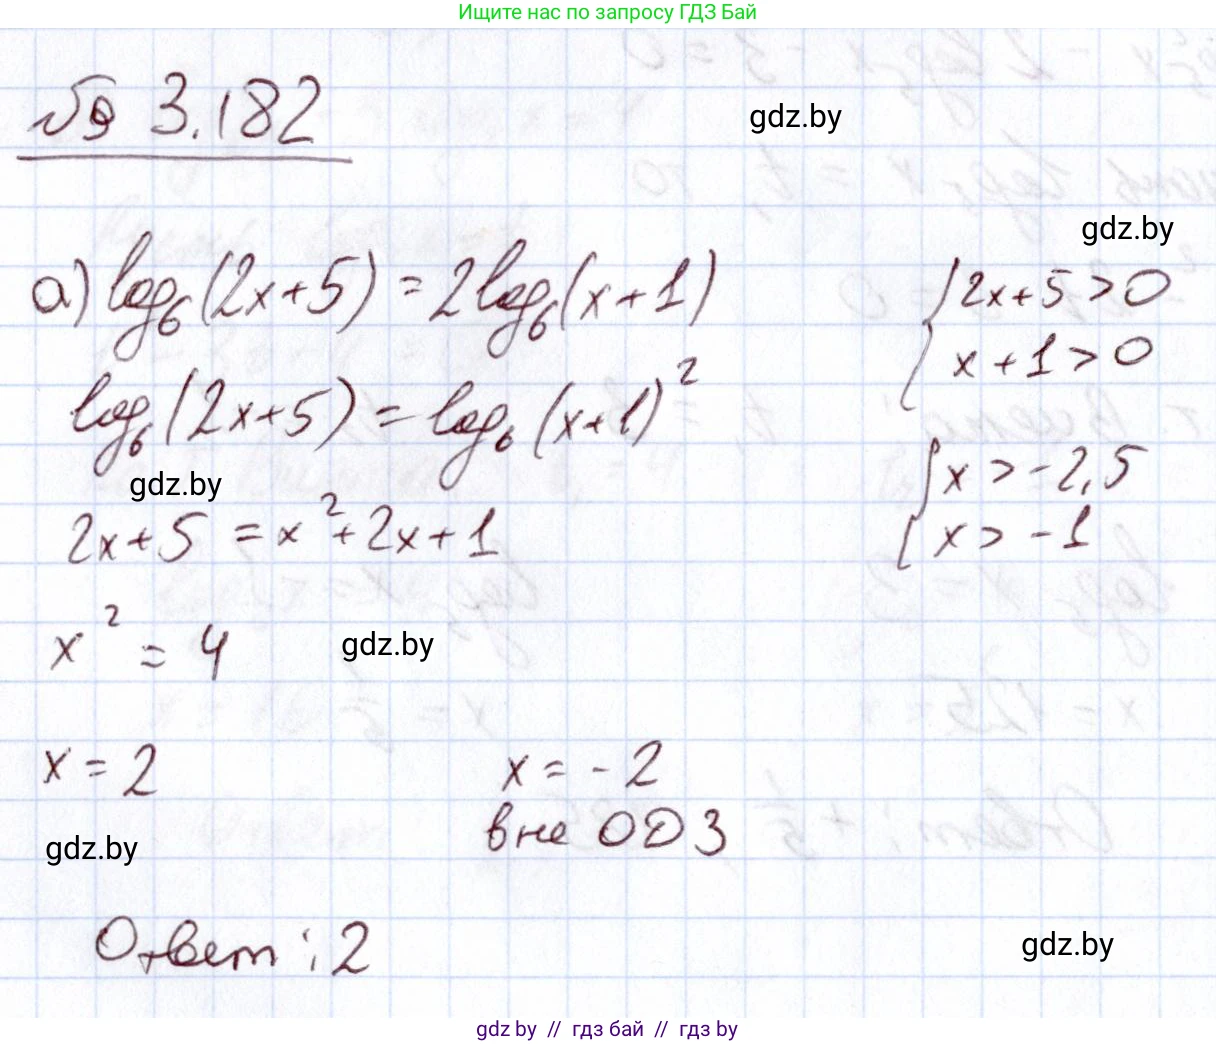 Ищите нас по запросу ГДЗ Бай
№ 3.182
gdz.by
gdz.by
а) log₆(2x+5) = 2log₆(x+1)
{2x+5>0
x+1>0
log₆(2x+5) = log₆(x+1)²
gdz.by
{x > -2,5
x > -1
2x+5 = x²+2x+1
x² = 4
gdz.by
x = 2
x = -2
вне ОДЗ
gdz.by
Ответ: 2
gdz.by
gdz by // гдз бай // гдз by